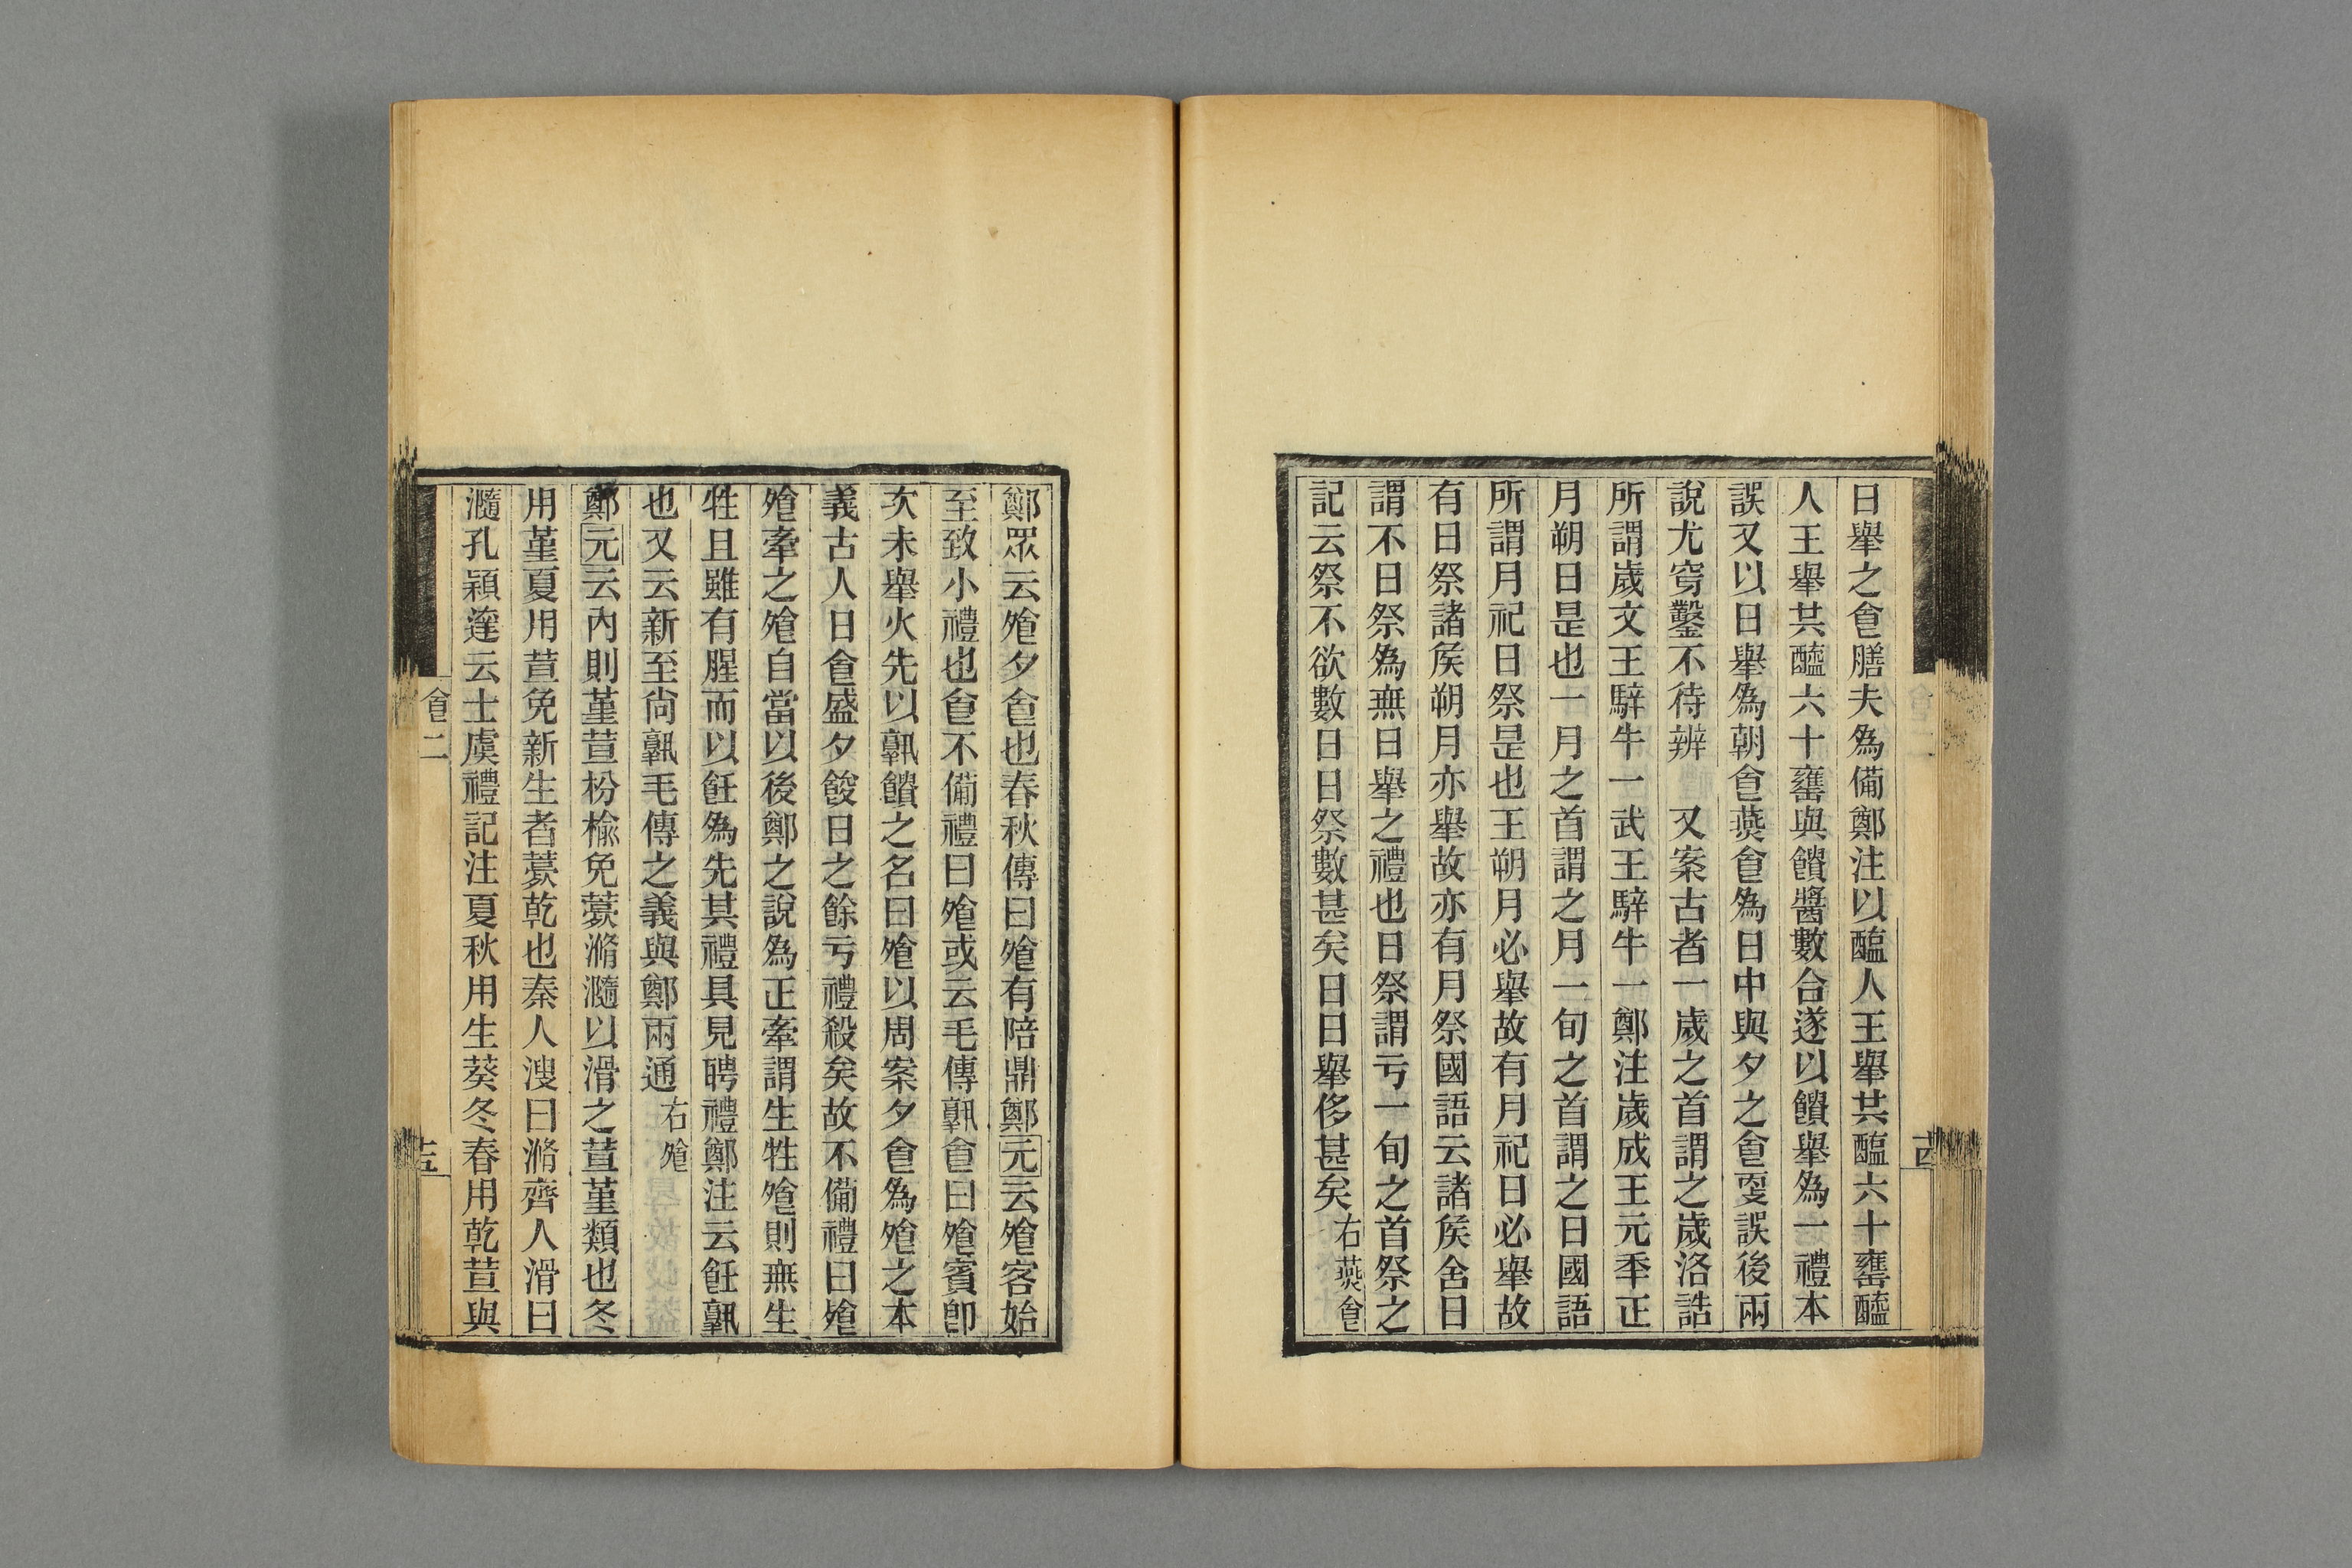 日舉之食膳夫為備鄭注以醢人王舉共醢六十罋醯
人王舉共醯六十罋與饋醬數合遂以饋舉為一禮本
誤又以日舉為朝食燕食為日中與夕之食耍誤後兩
說尤穿鑿不待辨　又案古者一歲之首謂之歲洛誥
所謂歲文王騂牛一武王騂牛一鄭注歲成王元秊正
月朔日是也一月之首謂之月一旬之首謂之日國語
所謂月祀日祭是也王朔月必舉故有月祀日必舉故
有日祭諸矦朔月亦舉故亦有月祭國語云諸矦舍日
謂不日祭為無日舉之禮也日祭謂亏一旬之首祭之
記云祭不欲數日日祭數甚矣日日舉侈甚矣右燕食
鄭眾云飧夕食也春秋傳曰飧有陪鼎鄭元云飧客始
至致小禮也食不備禮曰飧或云毛傳孰食曰飧賓卽
次未舉火先以孰饋之名曰飧以周案夕食為飧之本
義古人日食盛夕餕日之餘亏禮殺矣故不備禮曰飧
飧牽之飧自當以後鄭之說為正牽謂生牲飧則無生
牲且雖有腥而以飪為先其禮具見聘禮鄭注云飪孰
也又云新至尙孰毛傳之義與鄭兩通右飧
鄭元云內則菫荁枌榆免薧滫瀡以滑之荁菫類也冬
用菫夏用荁免新生者薧乾也秦人溲曰滫齊人滑曰
瀡孔穎達云士虞禮記注夏秋用生葵冬春用乾荁與
食二